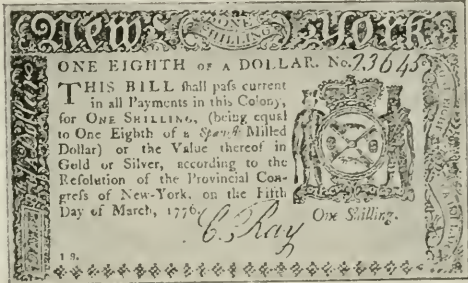 New ONE SHILLING York
ONE EIGHTH OF A DOLLAR. No. 23645
THIS BILL ſhall paſs current
in all Payments in this Colony,
for ONE SHILLING, (being equal
to One Eighth of a Spaniſh Milled
Dollar) or the Value thereof in
Gold or Silver, according to the
Reſolution of the Provincial Con-
greſs of New-York, on the Fifth
Day of March, 1776.
C. Ray
One Shilling.